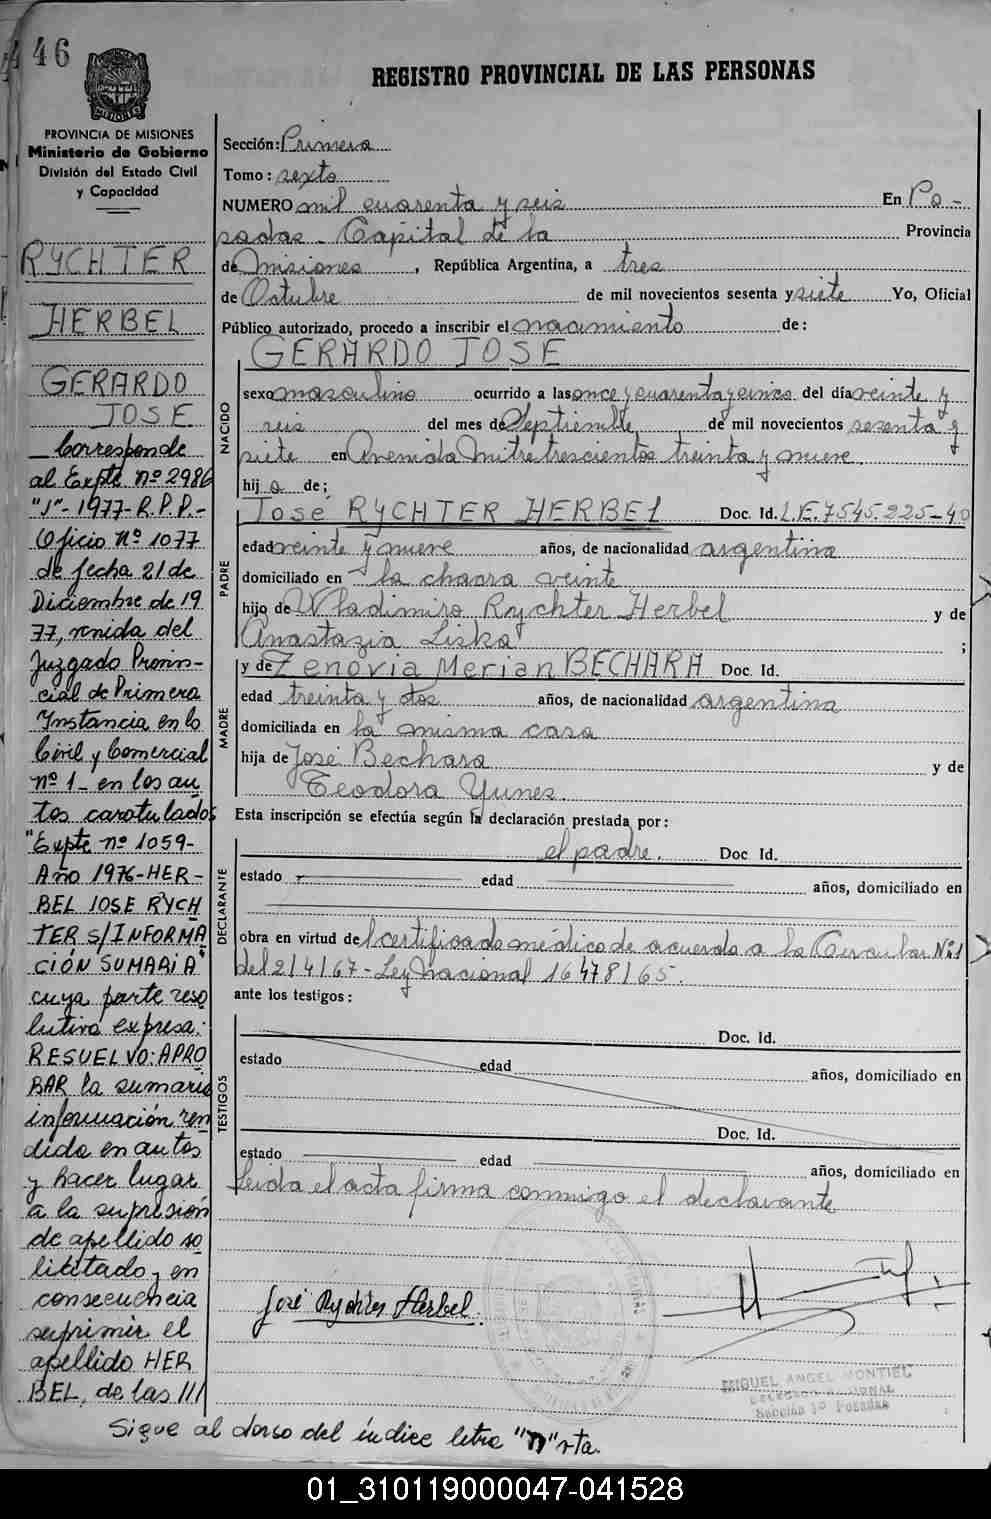 46
REGISTRO PROVINCIAL DE LAS PERSONAS
PROVINCIA DE MISIONES
Ministerio de Gobierno
División del Estado Civil
y Capacidad
RYCHTER
HERBEL
GERARDO
JOSE
Corresponde
al Expte nº 2986
"J"-1977-R.P.P.-
Oficio nº 1077
de fecha 21 de
Diciembre de 19
77, venida del
Juzgado Provin-
cial de Primera
Instancia en lo
Civil y Comercial
nº 1- en los au
tos caratulados
"Expte nº 1059-
Año 1976-HER-
BEL JOSE RYCH
TER S/INFORMA
CIÓN SUMARIA"
cuya parte reso
lutiva expresa:
RESUELVO: APRO
BAR la sumaria
información ren
dida en autos
y hacer lugar
a la supresión
de apellido so
licitado y en
consecuencia
suprimir el
apellido HER
BEL, de las ///
Sección: Primera
Tomo: sexto
NUMERO mil cuarenta y seis En Po-
sadas - Capital de la Provincia
de Misiones, República Argentina, a tres
de Octubre de mil novecientos sesenta y siete Yo, Oficial
Público autorizado, procedo a inscribir el nacimiento de:
GERARDO JOSE
NACIDO
sexo masculino ocurrido a las once y cuarenta y cinco del día veinte y
seis del mes de Septiembre de mil novecientos sesenta y
siete en Avenida Mitre trescientos treinta y nueve
hij o de;
PADRE
José RYCHTER HERBEL Doc. Id. L.E. 7545.225-40
edad veinte y nueve años, de nacionalidad argentina
domiciliado en la chacra veinte
hijo de Wladimiro Rychter Herbel y de
Anastazia Liska ;
MADRE
y de Zenovia Merian BECHARA Doc. Id.
edad treinta y dos años, de nacionalidad argentina
domiciliada en la misma casa
hija de José Bechara y de
Teodora Yunes.
Esta inscripción se efectúa según la declaración prestada por:
DECLARANTE
el padre. Doc Id.
estado edad años, domiciliado en
obra en virtud del certificado médico de acuerdo a la Circular Nº1
del 2/4/67-Ley Nacional 16478/65.
ante los testigos:
TESTIGOS
Doc. Id.
estado edad años, domiciliado en
Doc. Id.
estado edad años, domiciliado en
Leida el acta firma conmigo el declarante
José Rychter Herbel.
MIGUEL ANGEL MONTIEL
Sección 1º Posadas
Sigue al dorso del índice letra "Ñ" vta.
01_310119000047-041528